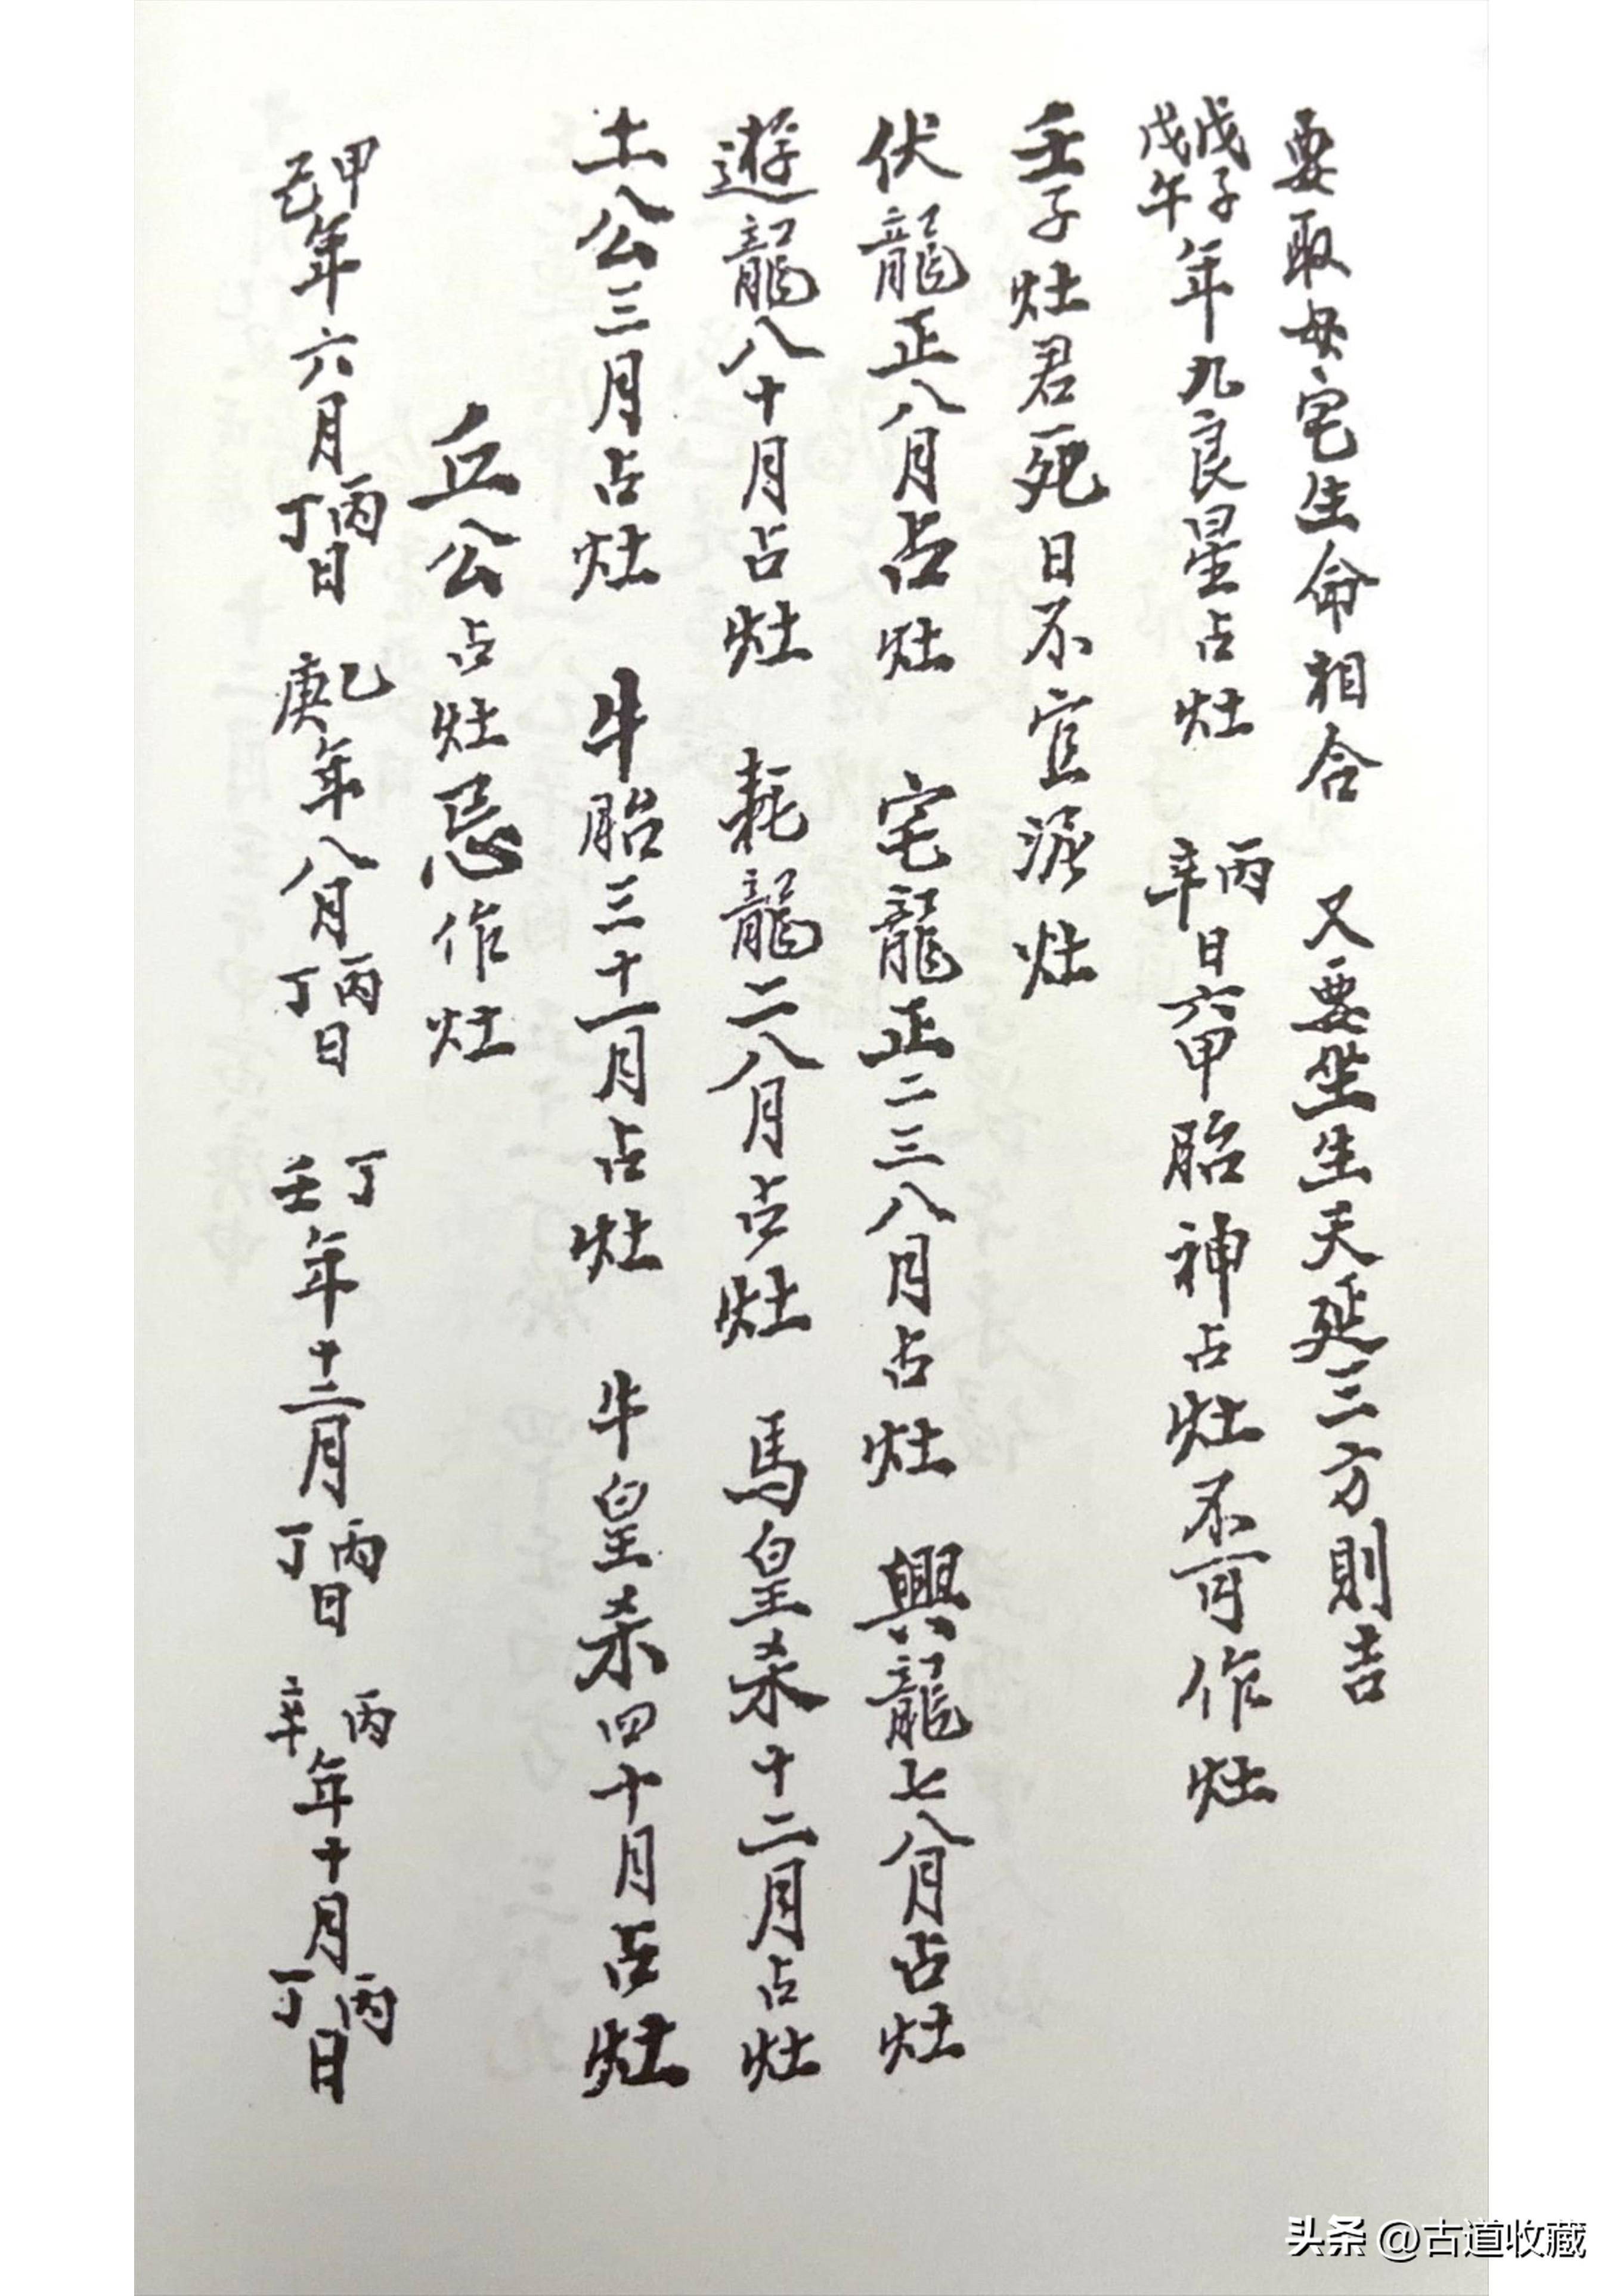 要取女宅生命相合 又要坐生天延三方則吉
戊子戊午年九良星占灶 丙辛日六甲胎神占灶不可作灶
壬子灶君死日不宜泥灶
伏龍正八月占灶 宅龍正二三八月占灶 興龍七八月占灶
遊龍八十月占灶 耗龍二八月占灶 馬皇杀十二月占灶
土公三月占灶 牛胎三十一月占灶 牛皇杀四十月占灶
丘公占灶忌作灶
甲己年六月丙丁日 乙庚年八月丙丁日 丁壬年十二月丙丁日 丙辛年十月丙丁日
头条 @古道收藏